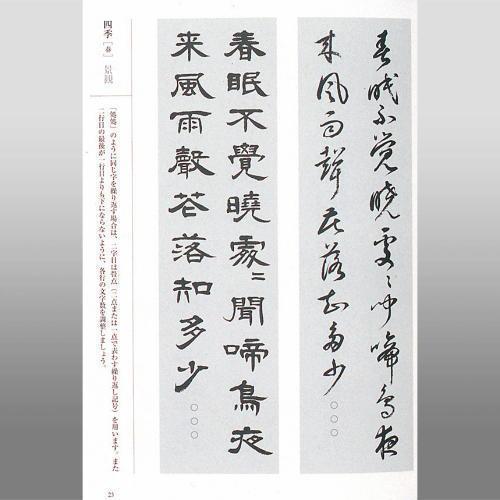 春眠不覺曉處〻聞啼鳥夜
来風雨聲花落知多少○○○
春眠不覺曉處〻聞啼鳥夜
来風雨聲花落知多少○○○
四季［春］景観
「處處」のように同じ字を繰り返す場合は、二字目は畳点（二点または一点で表わす繰り返し記号）を用います。また
二行目の最後が一行目よりも下にならないように、各行の文字数を調整しましょう。
23